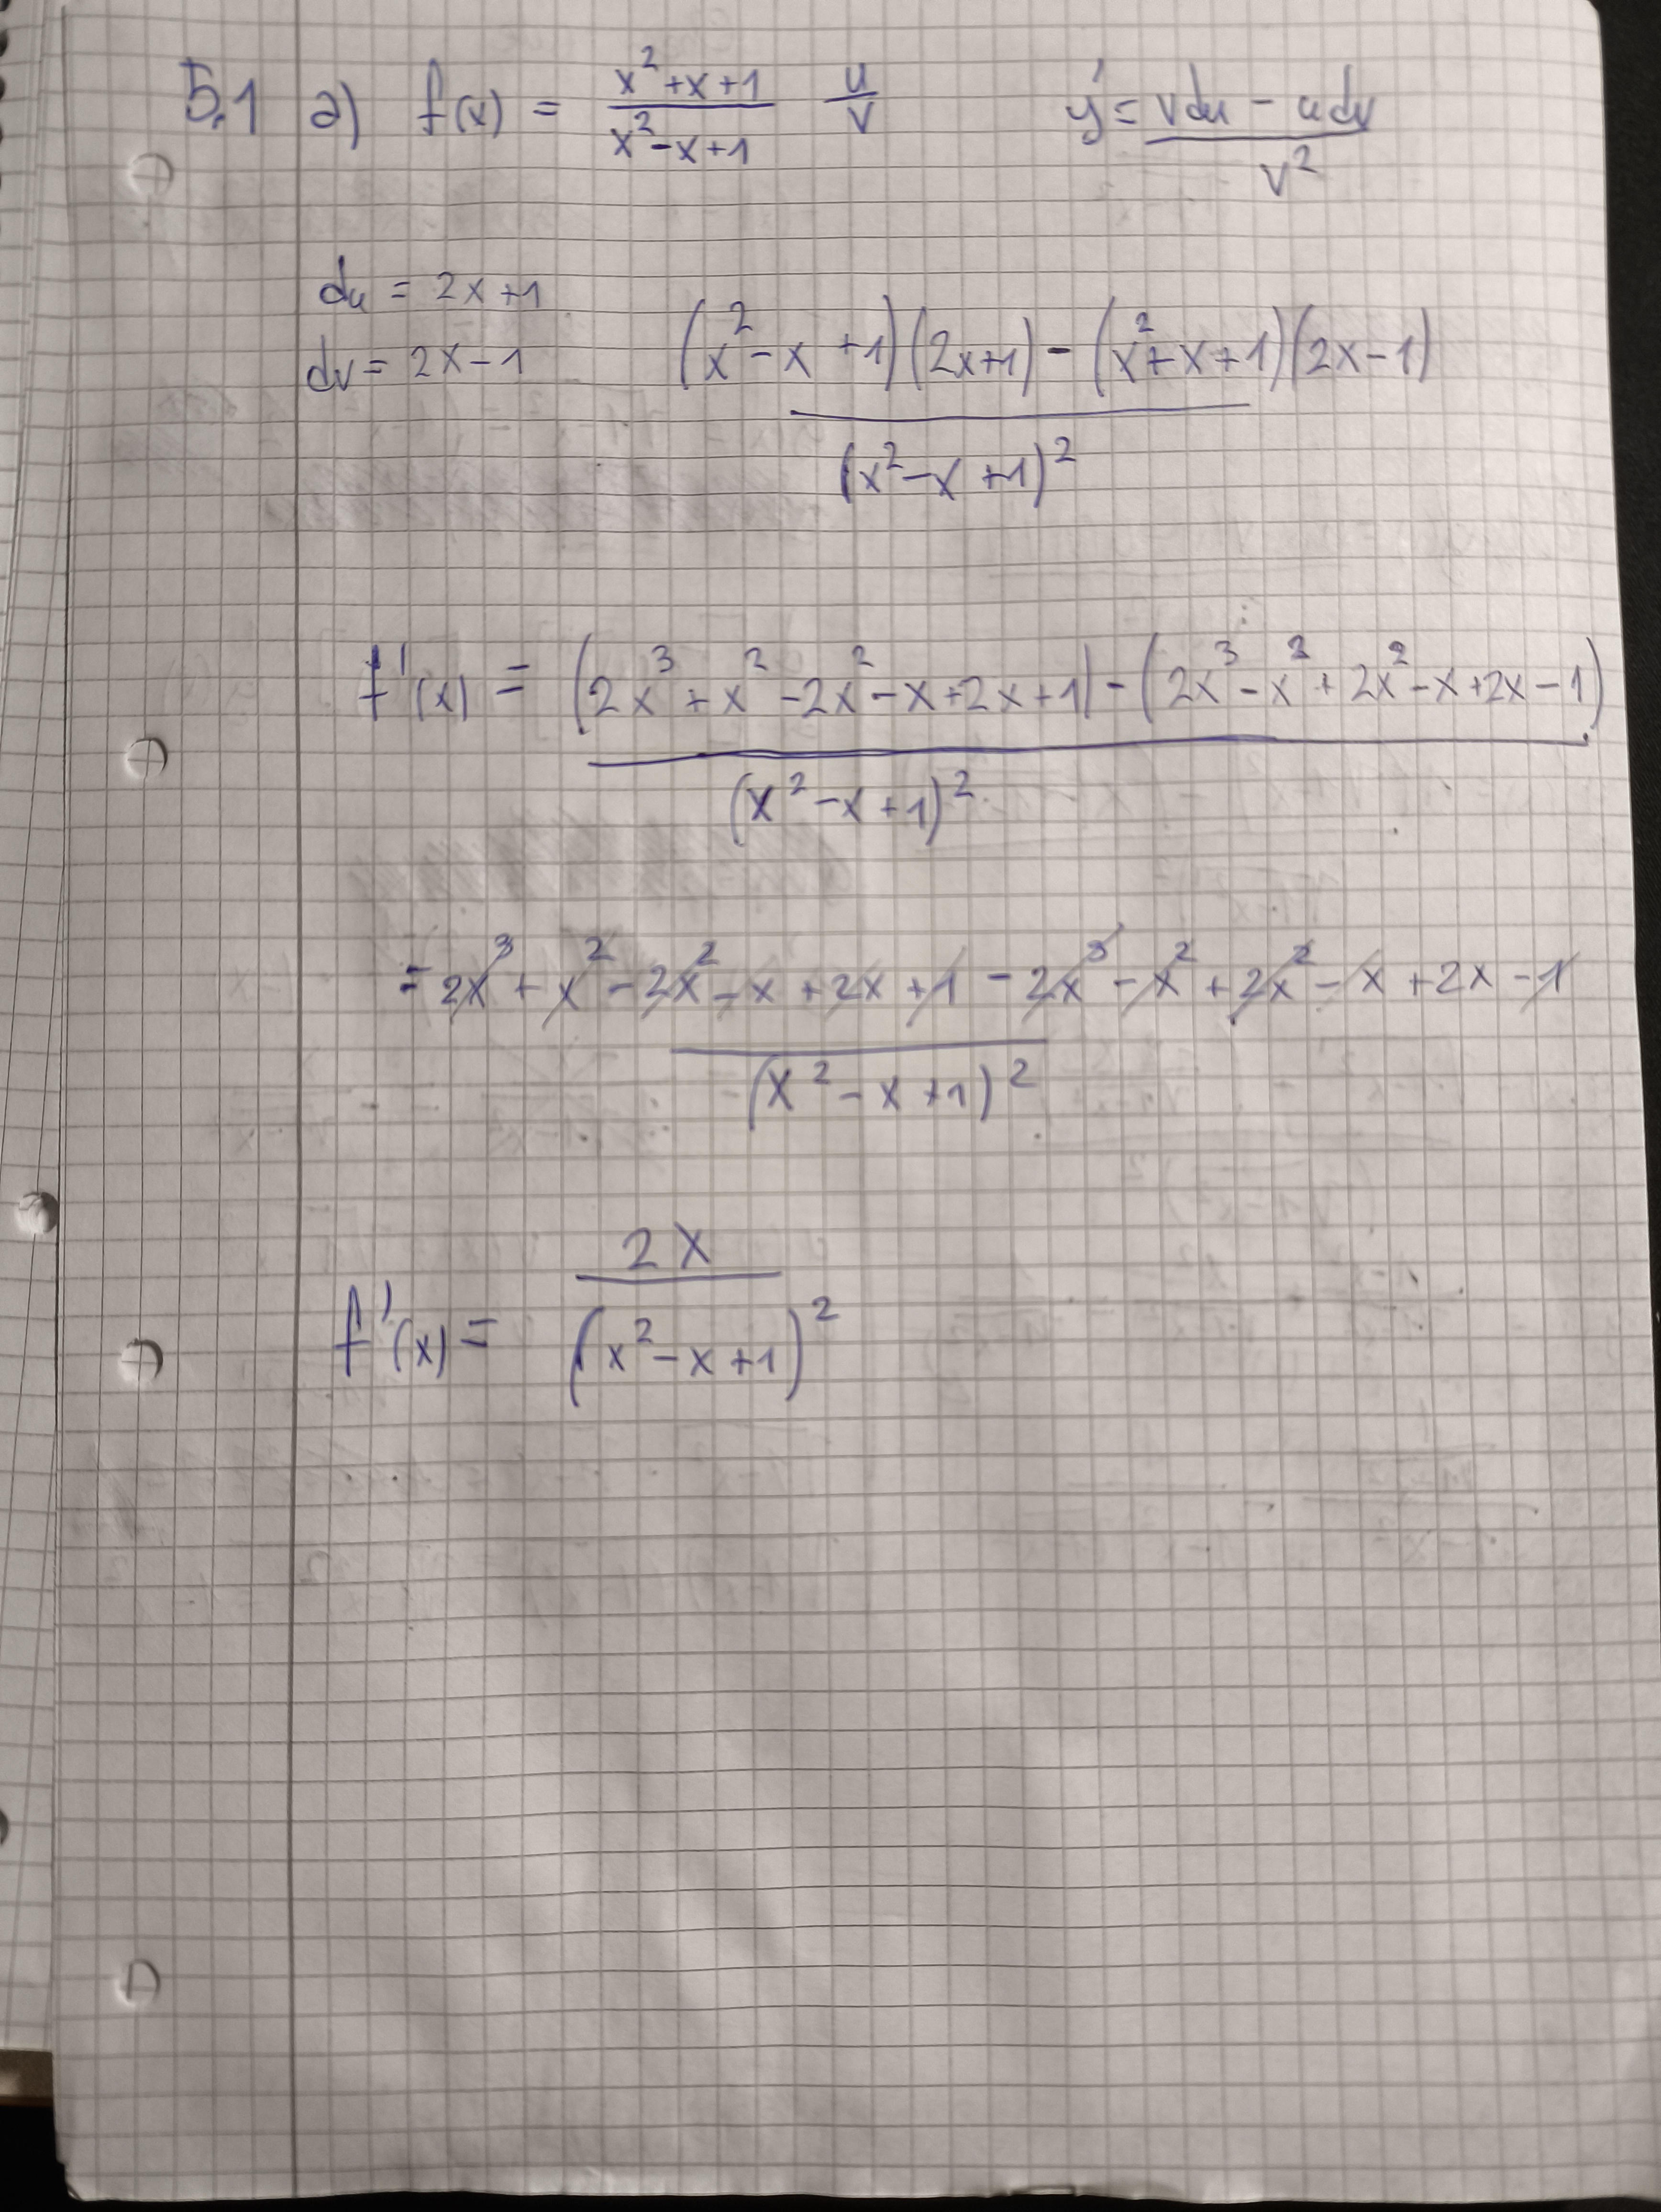 5.1 a) f(x) = x²+x+1 / x²-x+1 u/v y' = vdu - udv / v²
du = 2x+1
dv = 2x-1
(x²-x+1)(2x+1)-(x²+x+1)(2x-1)
(x²-x+1)²
f'(x) = (2x³+x²-2x²-x+2x+1)-(2x³-x²+2x²-x+2x-1)
(x²-x+1)²
= 2x³+x²-2x²-x+2x+1-2x³-x²+2x²-x+2x-1
(x²-x+1)²
f'(x) = 2x / (x²-x+1)²